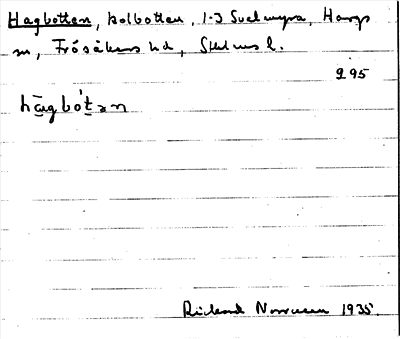 Hagbotten, kolbotten, 1-3 Svelmyra, Hargs
sn, Frösåkers hd, Sthlms l.
295
hāgbót̲ən
Rickard Norrman 1935.